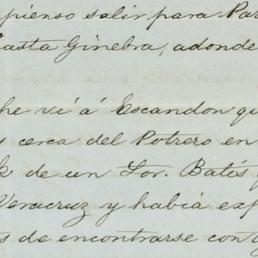 pienso salir para Par
asta Ginebra, adonde
he ví á Escandon qu
cerca del Potrero en
k de un Sor. Batés
Veracruz y habiá exp
s de encontrarse con